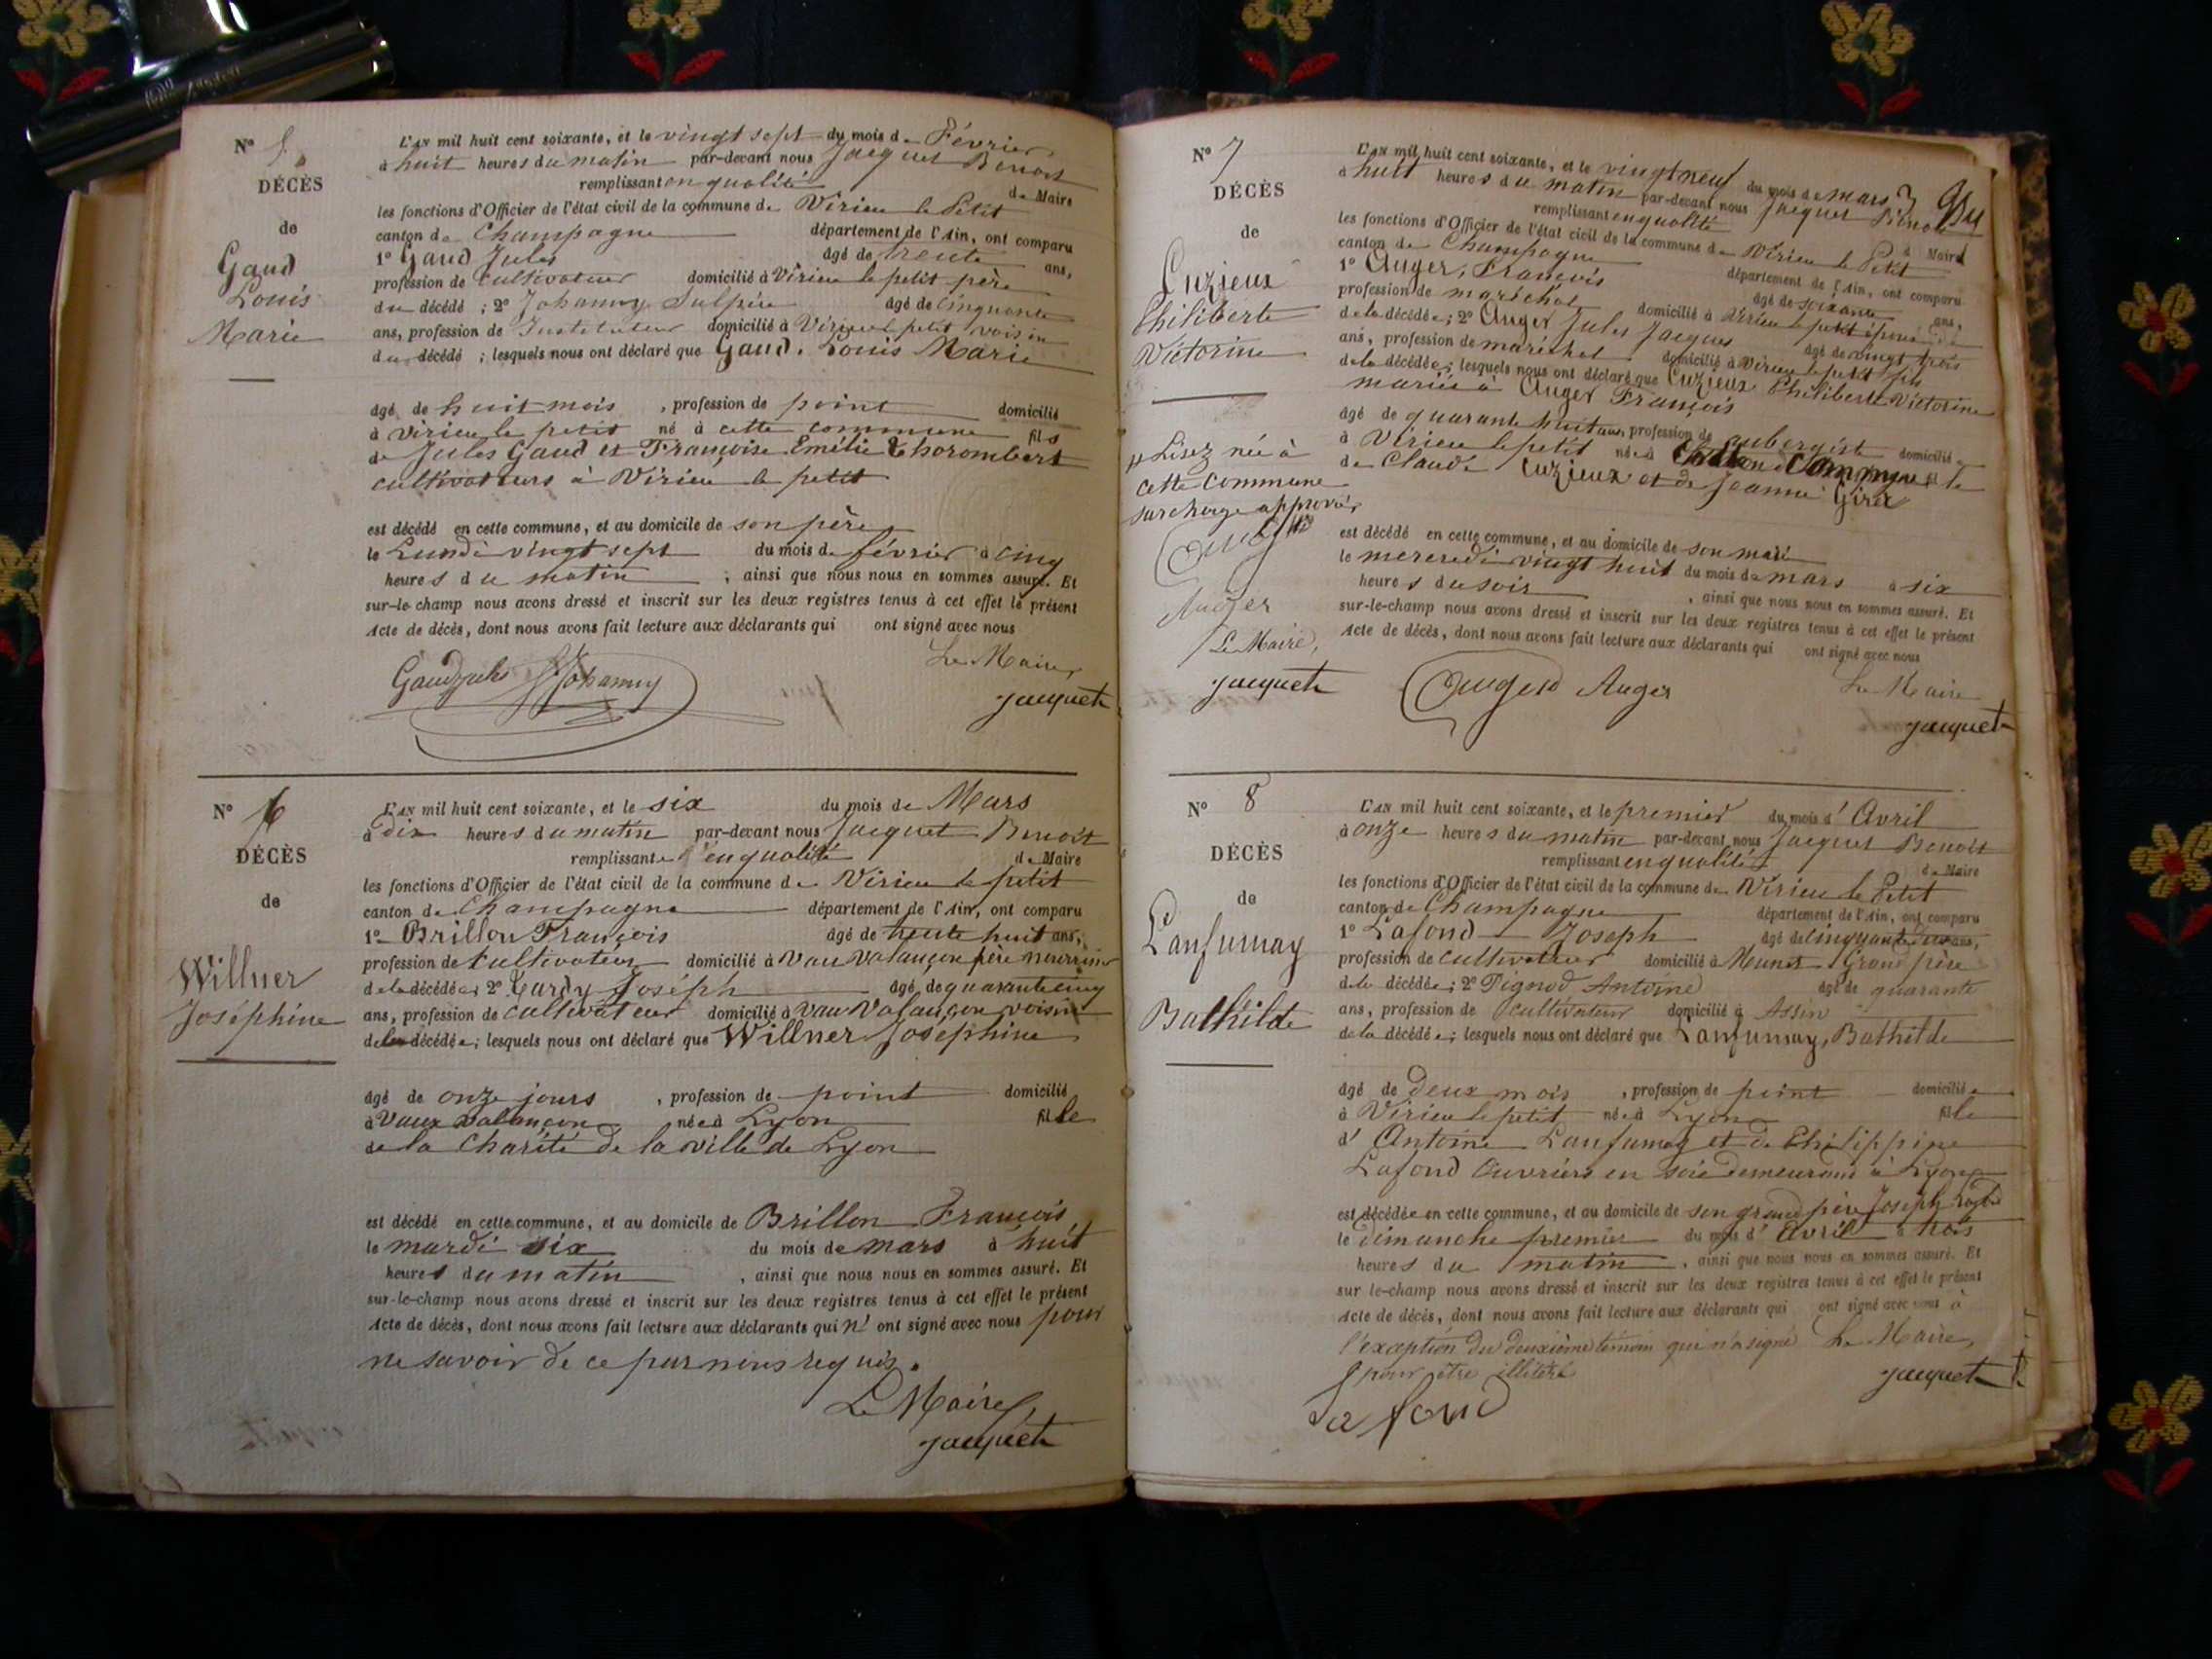 N° 5
DÉCÈS
de
Gaud
Louis
Marie
L'AN mil huit cent soixante, et le vingt sept du mois de Février
à huit heures du matin par-devant nous Jacquet Benoit
remplissant en qualité de Maire
les fonctions d'Officier de l'état civil de la commune de Virieu le Petit
canton de Champagne département de l'Ain, ont comparu
1° Gaud Jules âgé de trente ans,
profession de cultivateur domicilié à Virieu le petit père
du décédé ; 2° Johanny Sulpice âgé de cinquante
ans, profession de Instituteur domicilié à Virieu le petit voisin
du décédé ; lesquels nous ont déclaré que Gaud, Louis Marie
âgé de huit mois , profession de point domicilié
à Virieu le petit né à cette commune fils
de Jules Gaud et Françoise Emélie Thorombert
cultivateurs à Virieu le petit
est décédé en cette commune, et au domicile de son père
le Lundi vingt sept du mois de février à cinq
heures du matin ; ainsi que nous nous en sommes assuré. Et
sur-le-champ nous avons dressé et inscrit sur les deux registres tenus à cet effet le présent
Acte de décès, dont nous avons fait lecture aux déclarants qui ont signé avec nous
Le Maire,
Gaud Jules Johanny
Jacquet
N° 6
DÉCÈS
de
Willner
Joséphine
L'AN mil huit cent soixante, et le six du mois de Mars
à dix heures du matin par-devant nous Jacquet Benoit
remplissant en qualité de Maire
les fonctions d'Officier de l'état civil de la commune de Virieu le petit
canton de Champagne département de l'Ain, ont comparu
1° Brillon François âgé de trente huit ans,
profession de cultivateur domicilié à Vau Valançon père nourricier
de la décédée ; 2° Tardy Joséph âgé de quarante cinq
ans, profession de cultivateur domicilié à Vau Valançon voisin
de la décédée ; lesquels nous ont déclaré que Willner Joséphine
âgé de onze jours , profession de point domicilié
à Vaux Valançon née à Lyon fille
de la Charité de la ville de Lyon
est décédé en cette commune, et au domicile de Brillon François
le mardi six du mois de mars à huit
heures du matin , ainsi que nous nous en sommes assuré. Et
sur-le-champ nous avons dressé et inscrit sur les deux registres tenus à cet effet le présent
Acte de décès, dont nous avons fait lecture aux déclarants qui n' ont signé avec nous pour
ne savoir de ce par nous requis.
Le Maire,
Jacquet
N° 7
DÉCÈS
de
Cuzieux
Philiberte
Victorine
Lisez née à
cette commune
surcharge approuvée
Auger
Le Maire,
Jacquet
L'AN mil huit cent soixante, et le vingt neuf du mois de mars
à huit heures du matin par-devant nous Jacquet Benoit
remplissant en qualité de Maire
les fonctions d'Officier de l'état civil de la commune de Virieu le Petit
canton de Champagne département de l'Ain, ont comparu
1° Auger, François âgé de soixante ans,
profession de maréchal domicilié à Virieu le petit époux
de la décédée ; 2° Auger Jules Jacques âgé de vingt trois
ans, profession de maréchal domicilié à Virieu le petit fils
de la décédée ; lesquels nous ont déclaré que Cuzieux Philiberte Victorine
mariée à Auger François
âgé de quarante huit ans, profession de aubergiste domicilié
à Virieu le petit née à commune fille
de Claude Cuzieux et de Jeanne Girel
est décédé en cette commune, et au domicile de son mari
le mercredi vingt huit du mois de mars à six
heures du soir , ainsi que nous nous en sommes assuré. Et
sur-le-champ nous avons dressé et inscrit sur les deux registres tenus à cet effet le présent
Acte de décès, dont nous avons fait lecture aux déclarants qui ont signé avec nous
Le Maire
Auger Auger
Jacquet
N° 8
DÉCÈS
de
Lanfumay
Bathilde
L'AN mil huit cent soixante, et le premier du mois d' Avril
à onze heures du matin par-devant nous Jacquet Benoit
remplissant en qualité de Maire
les fonctions d'Officier de l'état civil de la commune de Virieu le Petit
canton de Champagne département de l'Ain, ont comparu
1° Lafond Joseph âgé de cinquante deux ans,
profession de cultivateur domicilié à Munet Grand père
de la décédée ; 2° Pignod Antoine âgé de quarante
ans, profession de cultivateur domicilié à Assin
de la décédée ; lesquels nous ont déclaré que Lanfumay, Bathilde
âgé de deux mois , profession de point domiciliée
à Virieu le petit née à Lyon fille
d' Antoine Lanfumay et de Philippine
Lafond Ouvriers en soie demeurans à Lyon
est décédée en cette commune, et au domicile de son grand père Joseph Lafond
le dimanche premier du mois d' Avril à trois
heures du matin , ainsi que nous nous en sommes assuré. Et
sur-le-champ nous avons dressé et inscrit sur les deux registres tenus à cet effet le présent
Acte de décès, dont nous avons fait lecture aux déclarants qui ont signé avec nous à
l'exception du deuxième témoin qui n'a signé Le Maire,
pour être illitéré Jacquet
Lafond